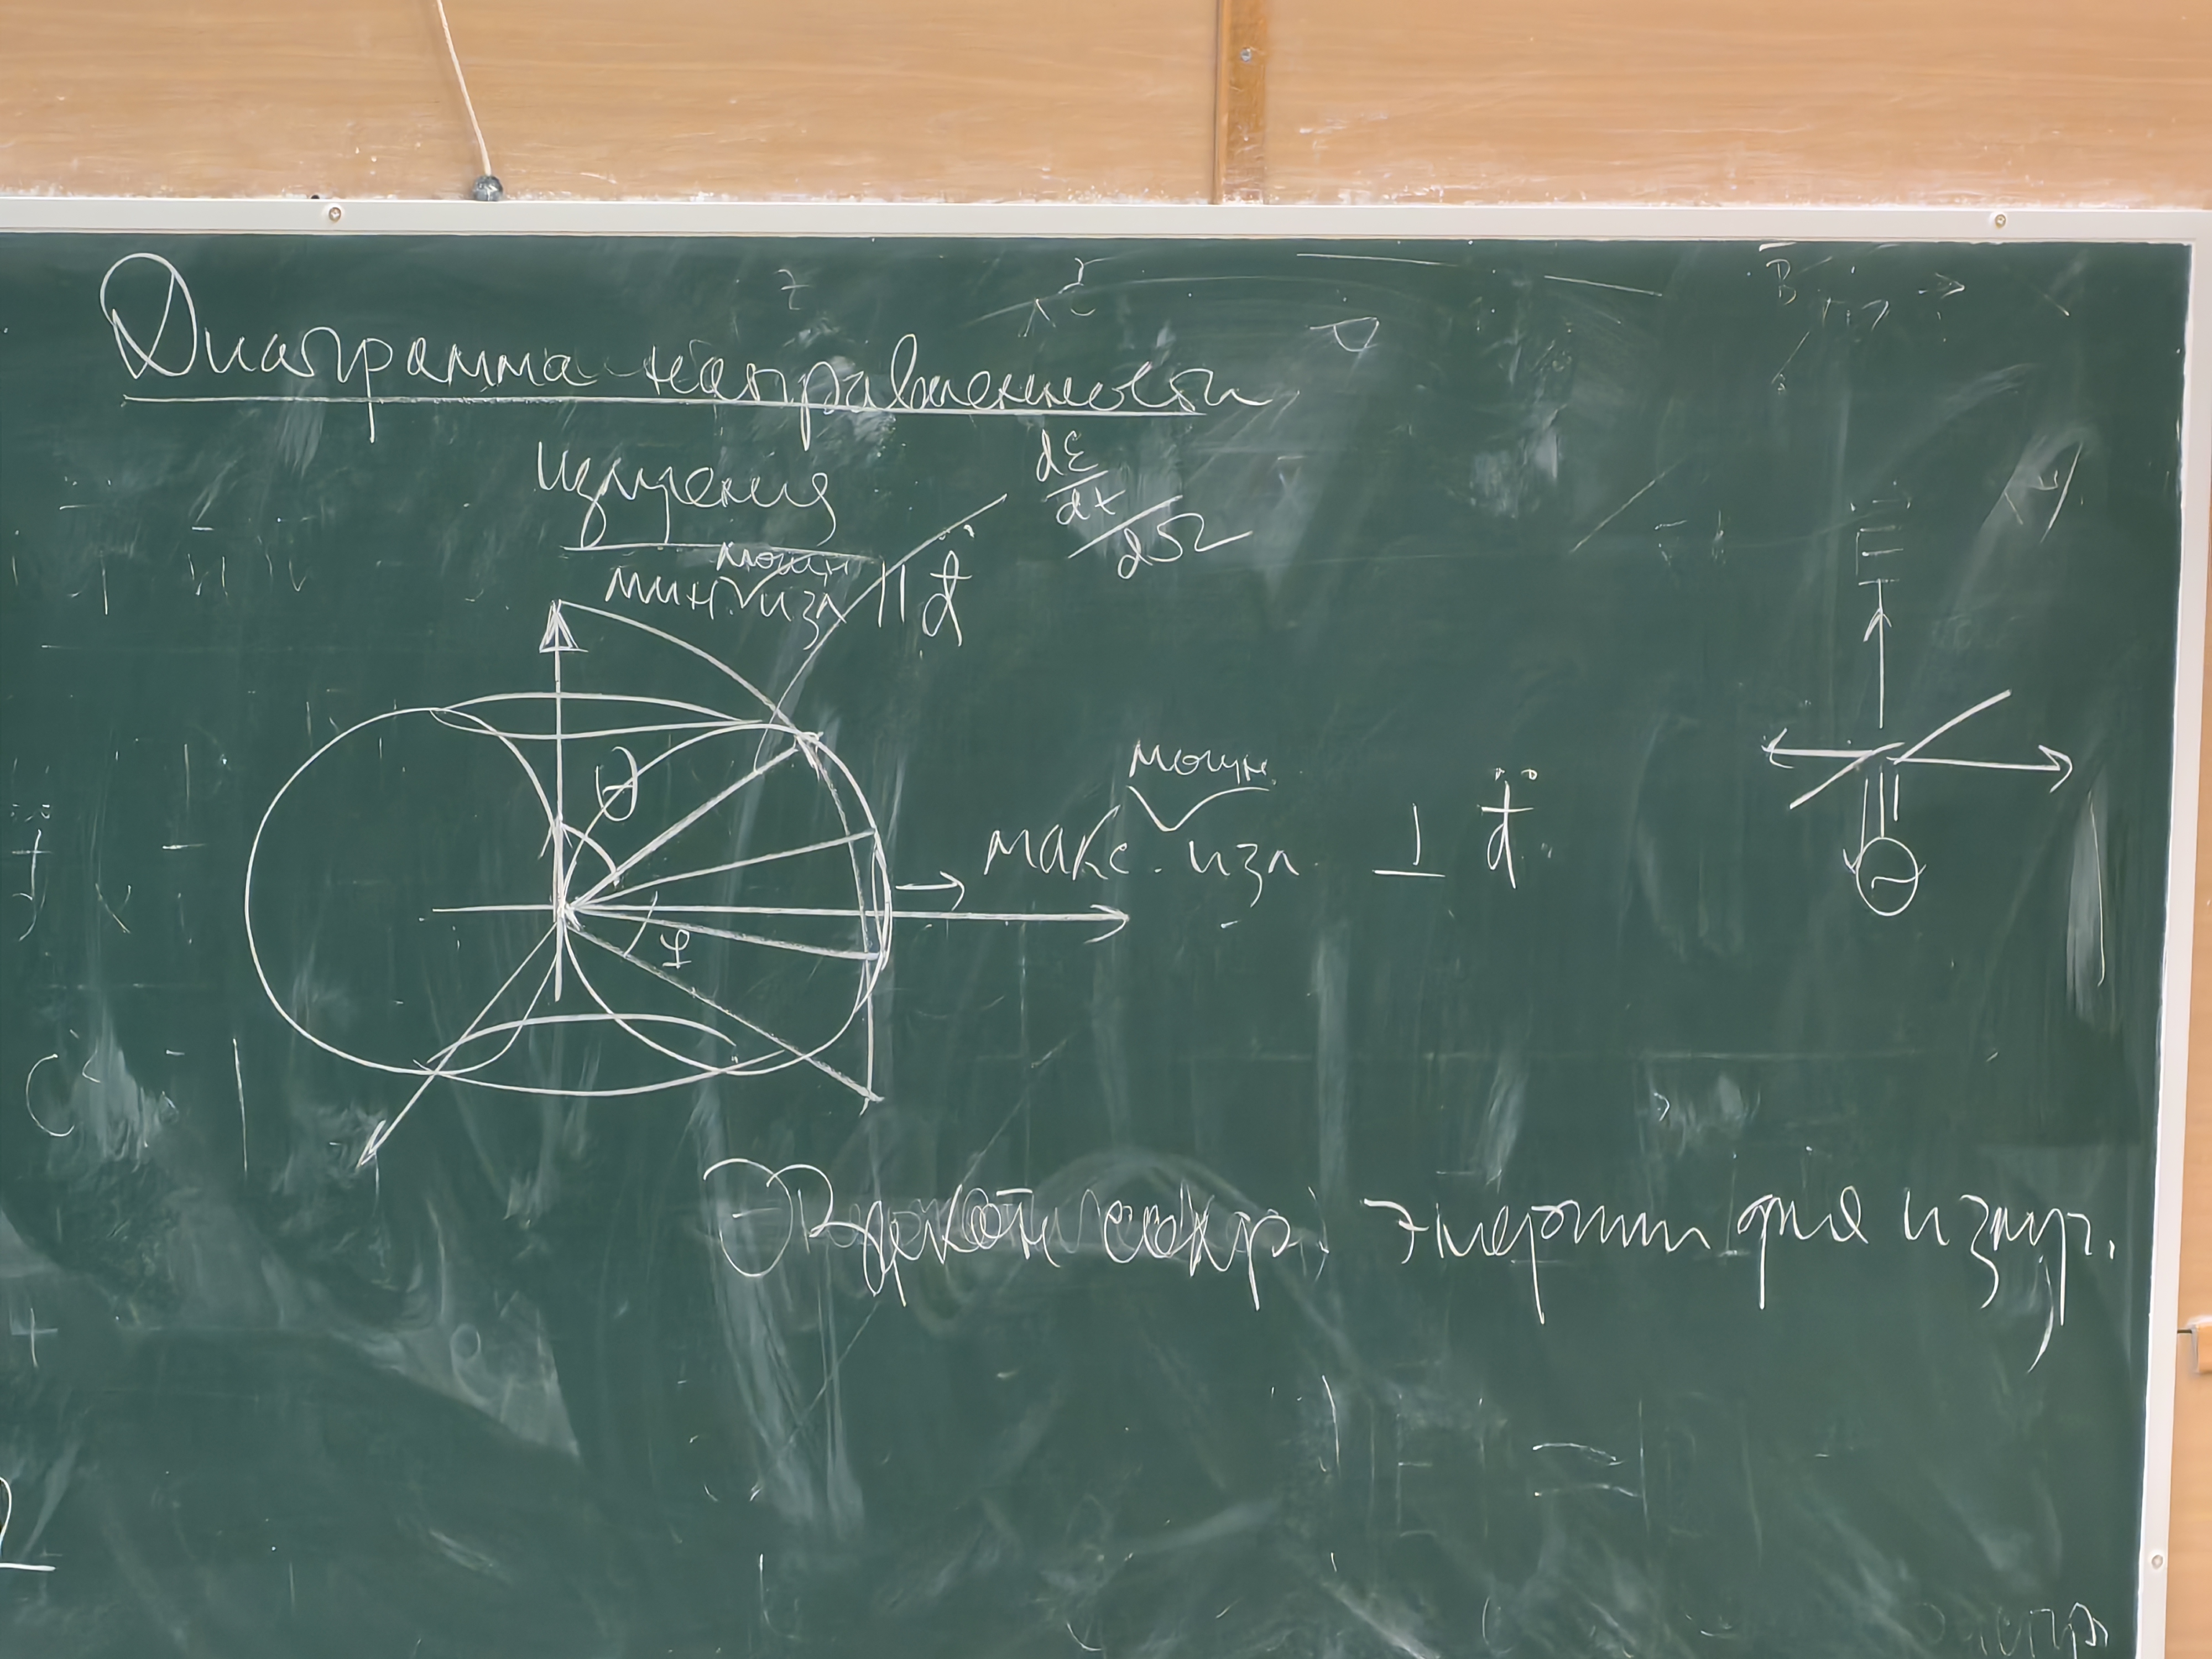 Диаграмма направленности
излучения
dℰ/dt / dΩ
мощн
мин. изл || d̈
E
θ
мощн.
макс. изл. ⊥ d̈
φ
сохр. энергии для излуч.